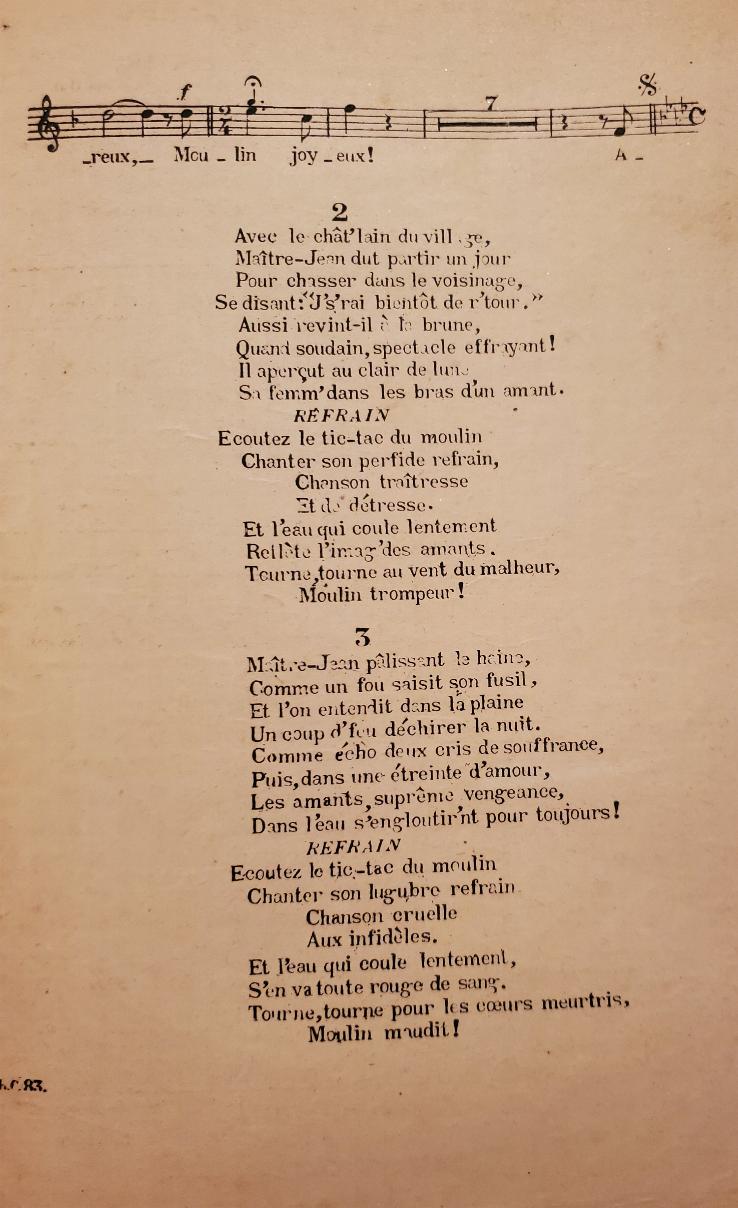 f
7
_reux,_ Mou _ lin joy _ eux! A _
2
Avec le chât'lain du village,
Maître-Jean dut partir un jour
Pour chasser dans le voisinage,
Se disant: "J's'rai bientôt de r'tour."
Aussi revint-il à la brune,
Quand soudain, spectacle effrayant!
Il aperçut au clair de lune
Sa femm' dans les bras d'un amant.
REFRAIN
Ecoutez le tic-tac du moulin
Chanter son perfide refrain,
Chanson traîtresse
Et de détresse.
Et l'eau qui coule lentement
Reflète l'imag' des amants.
Tourne, tourne au vent du malheur,
Moulin trompeur!
3
Maître-Jean pâlissant le haine,
Comme un fou saisit son fusil,
Et l'on entendit dans la plaine
Un coup d'feu déchirer la nuit.
Comme écho deux cris de souffrance,
Puis, dans une étreinte d'amour,
Les amants, suprême vengeance,
Dans l'eau s'engloutir'nt pour toujours!
REFRAIN
Ecoutez le tic-tac du moulin
Chanter son lugubre refrain
Chanson cruelle
Aux infidèles.
Et l'eau qui coule lentement,
S'en va toute rouge de sang.
Tourne, tourne pour les cœurs meurtris,
Moulin maudit!
C. 83.